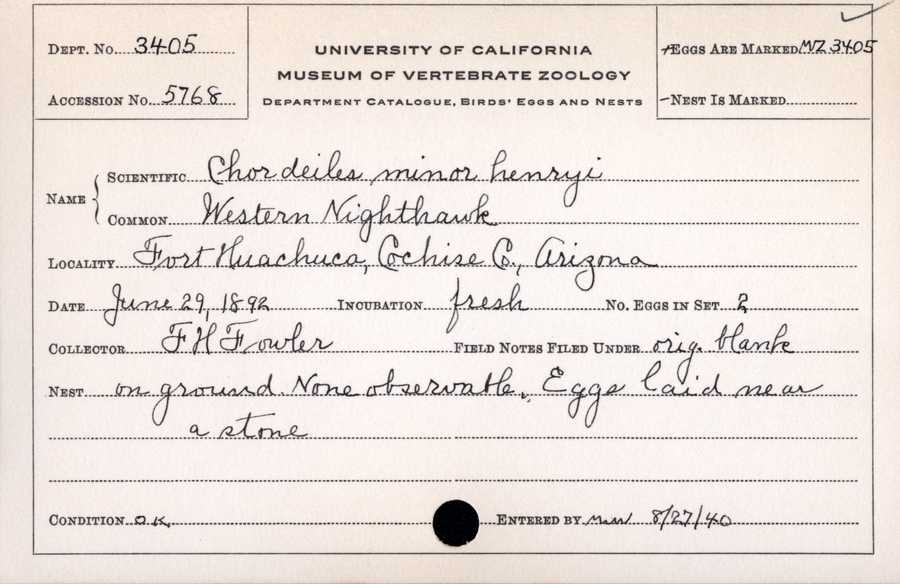 Dept. No. 3405
Accession No. 5768
UNIVERSITY OF CALIFORNIA
MUSEUM OF VERTEBRATE ZOOLOGY
Department Catalogue, Birds' Eggs and Nests
+Eggs Are Marked MVZ 3405
-Nest Is Marked
Name
Scientific Chordeiles minor henryi
Common Western Nighthawk
Locality Fort Huachuca, Cochise Co., Arizona
Date June 29, 1892 Incubation fresh No. Eggs in Set 2
Collector F H Fowler Field Notes Filed Under orig. blank
Nest on ground. None observable. Eggs laid near
a stone
Condition OK Entered by 8/27/40